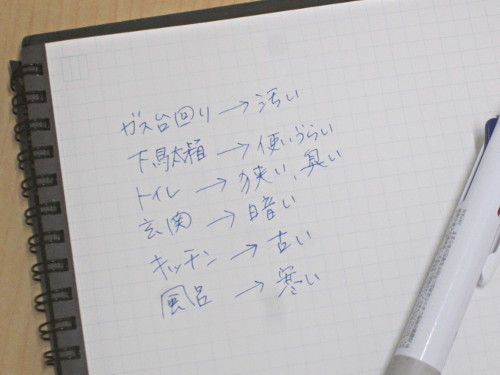 ガス台回り→汚い
下駄箱→使いづらい
トイレ→狭い、臭い
玄関→暗い
キッチン→古い
風呂→寒い